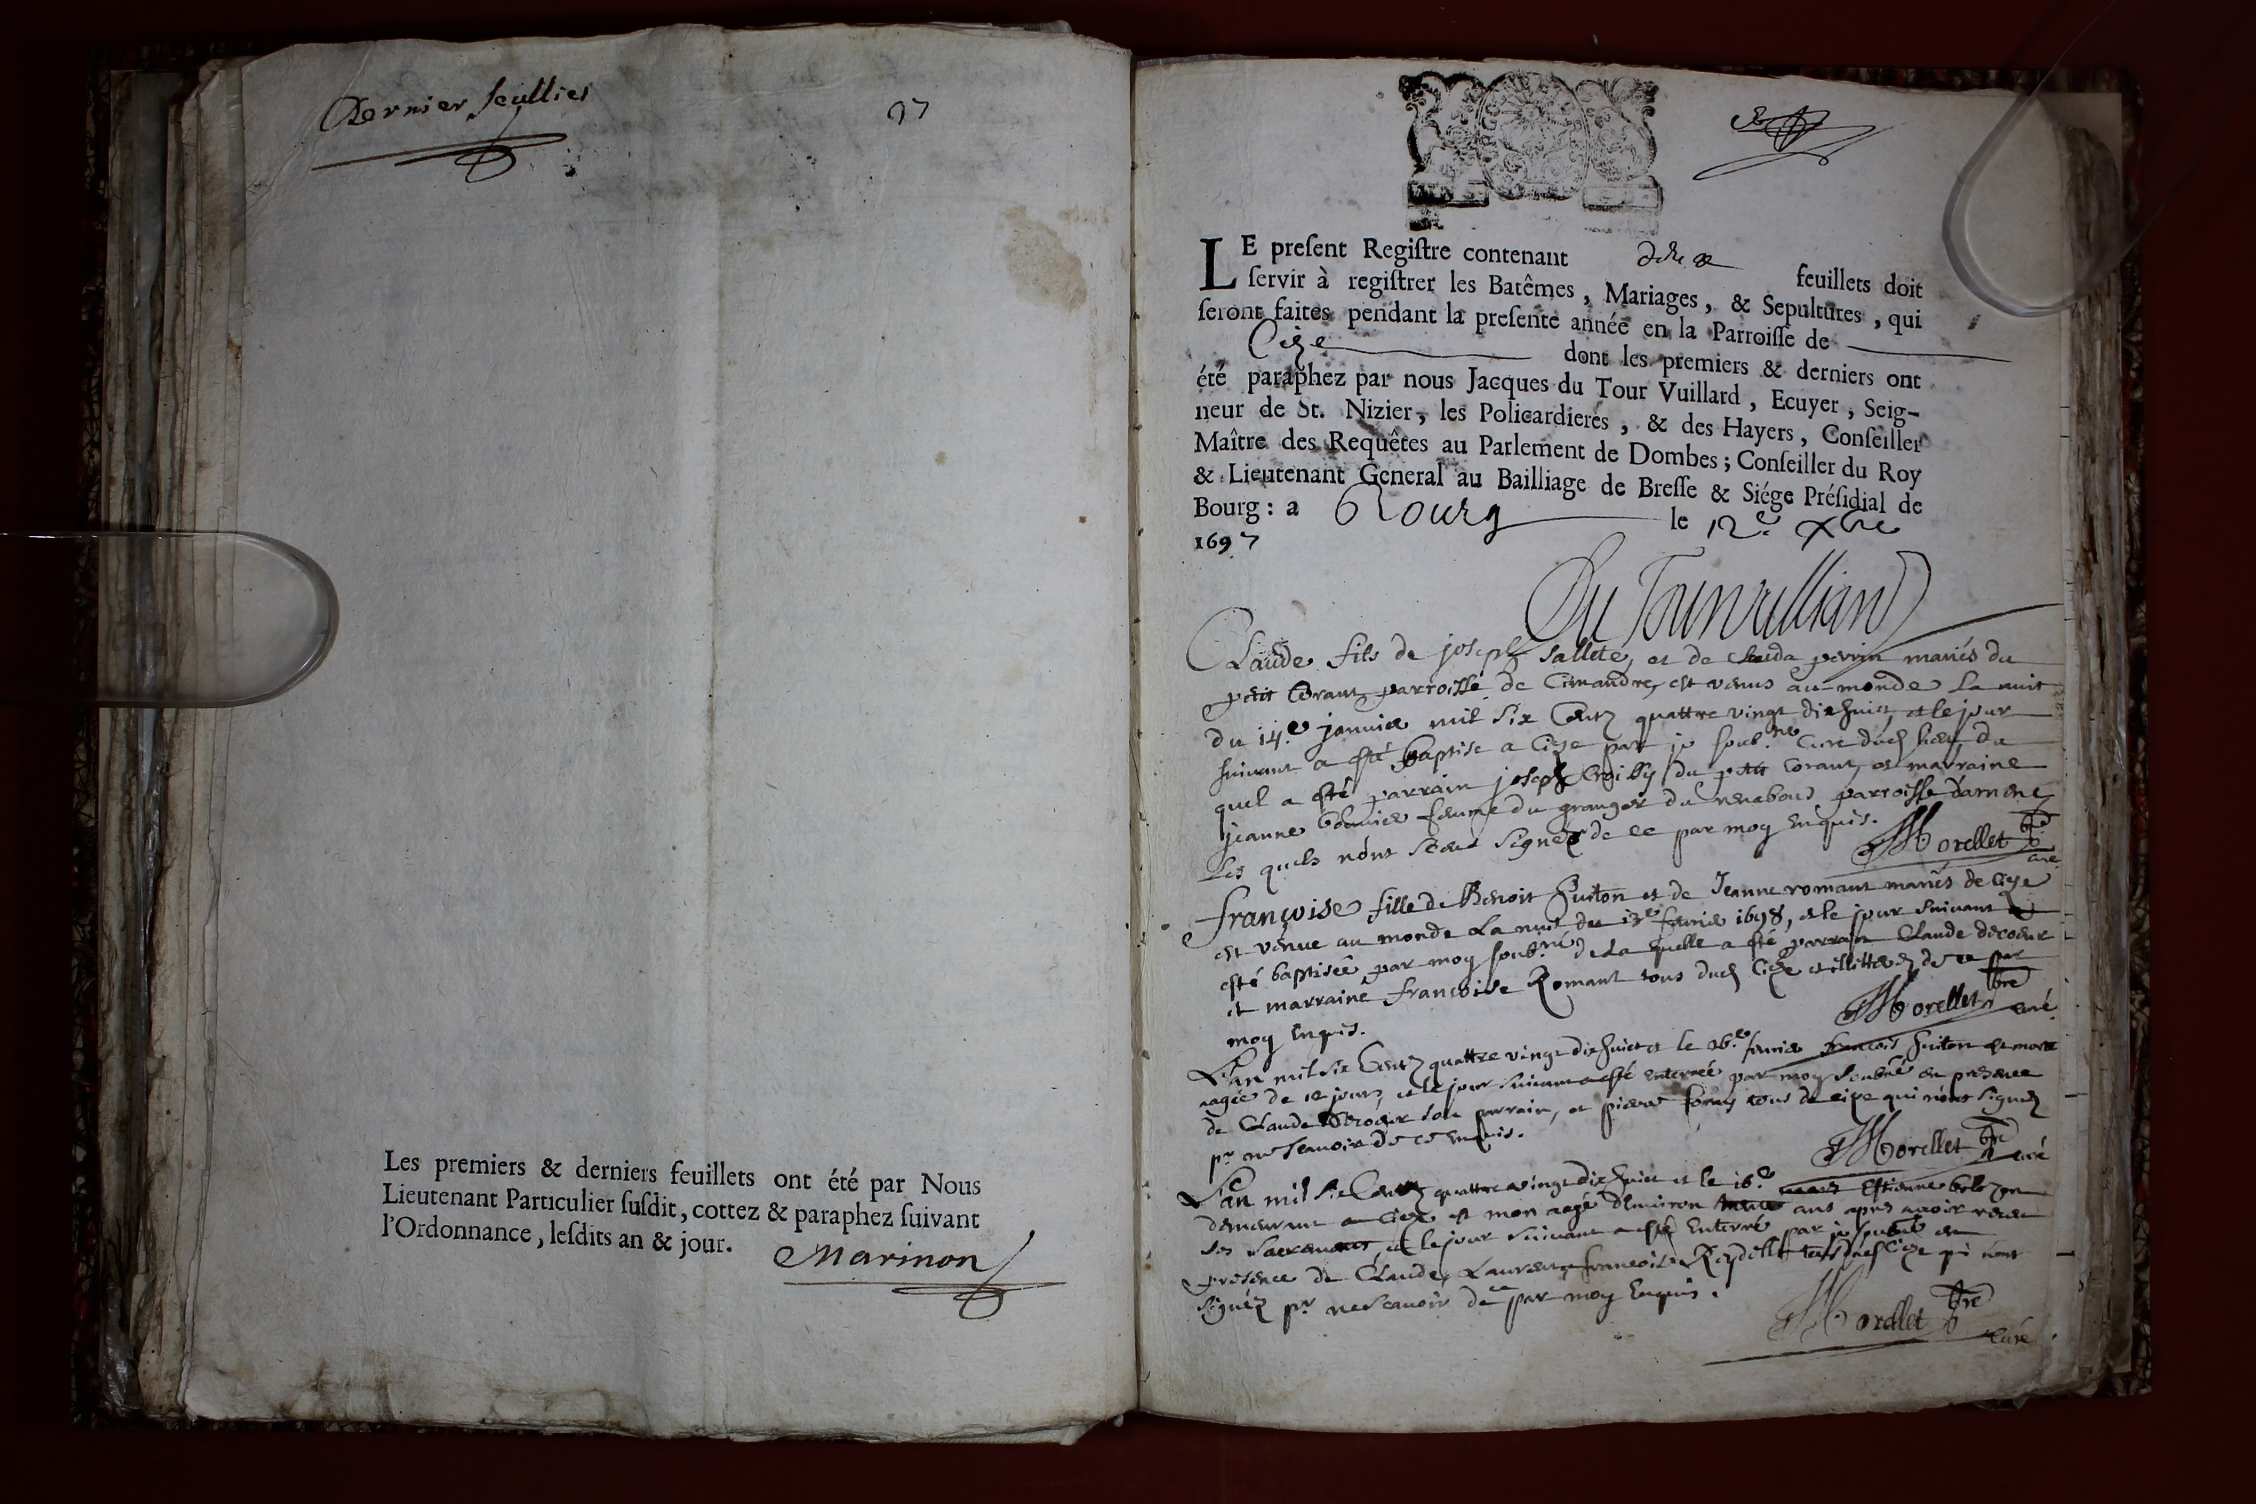 Dernier feullier
97
Les premiers & derniers feuillets ont été par Nous
Lieutenant Particulier suſdit, cottez & paraphez ſuivant
l'Ordonnance, leſdits an & jour.
Marinon
LE preſent Regiſtre contenant deux feuillets doit
ſervir à regiſtrer les Batêmes, Mariages, & Sepultures, qui
ſeront faites pendant la preſente année en la Parroiſſe de
Cize dont les premiers & derniers ont
été paraphez par nous Jacques du Tour Vuillard, Ecuyer, Seig-
neur de St. Nizier, les Policardieres, & des Hayers, Conſeiller
Maître des Requêtes au Parlement de Dombes; Conſeiller du Roy
& Lieutenant General au Bailliage de Breſſe & Siége Préſidial de
Bourg: a Bourg le 12e xbre
1697
Claude fils de joseph sallete, et de perrin mariés du
petit Corant parroisse de Cimandre, est venus au monde la nuit
du 14e janvier mil six Centz quattre vingt dix huict, et le jour
suivant a esté baptise a Cize par je soub.né Curé dud lieu, du
quel a esté parrain joseph du petit Corant, et marraine
jeanne femme du granger du parroisse d'arnenc
les quels n'ont sceu signer de ce par moy enquis.
Morellet pbre
curé
françoise fille de Benoit Guiton et de Jeanne romant mariés de Cize
est venue au monde la nuit du fevrier 1698, et le jour suivant a
esté baptisée par moy soub.né de la quelle a esté parrain Claude decoeur
et marraine françoise Romant tous dud Cize et illitterez de ce par
moy enquis.
Morellet pbre
curé
L'an mil six Centz quattre vingt dix huict et le 26e fevrier Guiton est morte
aagée de jours, et le jour suivant a esté enterrée par moy soubné en presence
de Claude Decoeur son parrain, et pierre tous de cize qui n'ont signez
pr ne scavoir de ce enquis.
Morellet pbre
curé
L'an mil six Centz quattre vingt dix huict et le 16e mars Estienne
demeurant a Cize est mort aagé d'environ ans apres avoir receu
les sacremens, et le jour suivant a esté enterré par je soubné en
presence de Claude Laurent, françois Reydellet tous dud Cize qui n'ont
signéz pr ne scavoir de ce par moy enquis.
Morellet pbre
curé